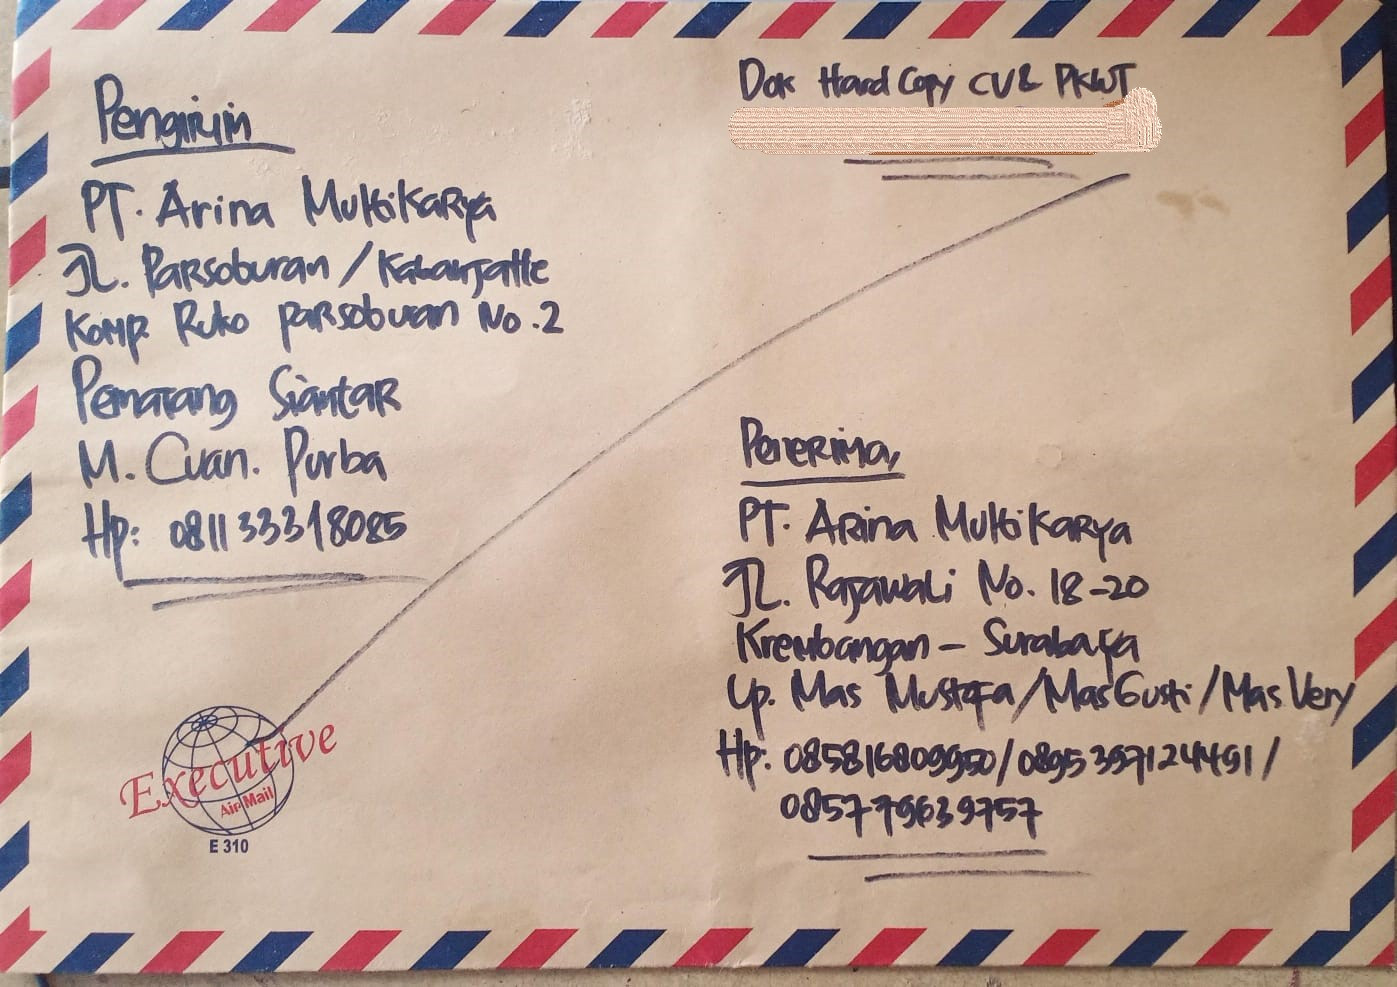 Pengirim
PT. Arina MultiKaRya
JL. PaRsoburan /
Komp. Ruko paRsoburan No.2
Pematang SiantaR
M. Cuan. Purba
Hp: 081133318085
Dok Hard Copy CV & PKWT
Penerima,
PT. ARina MultiKaRya
JL. Rajawali No. 18-20
Krembangan - Surabaya
Up. Mas Mustofa/Mas Gusti/Mas Very
Hp: 085816809950/0895397124491/
085779639757
Executive
Air Mail
E 310